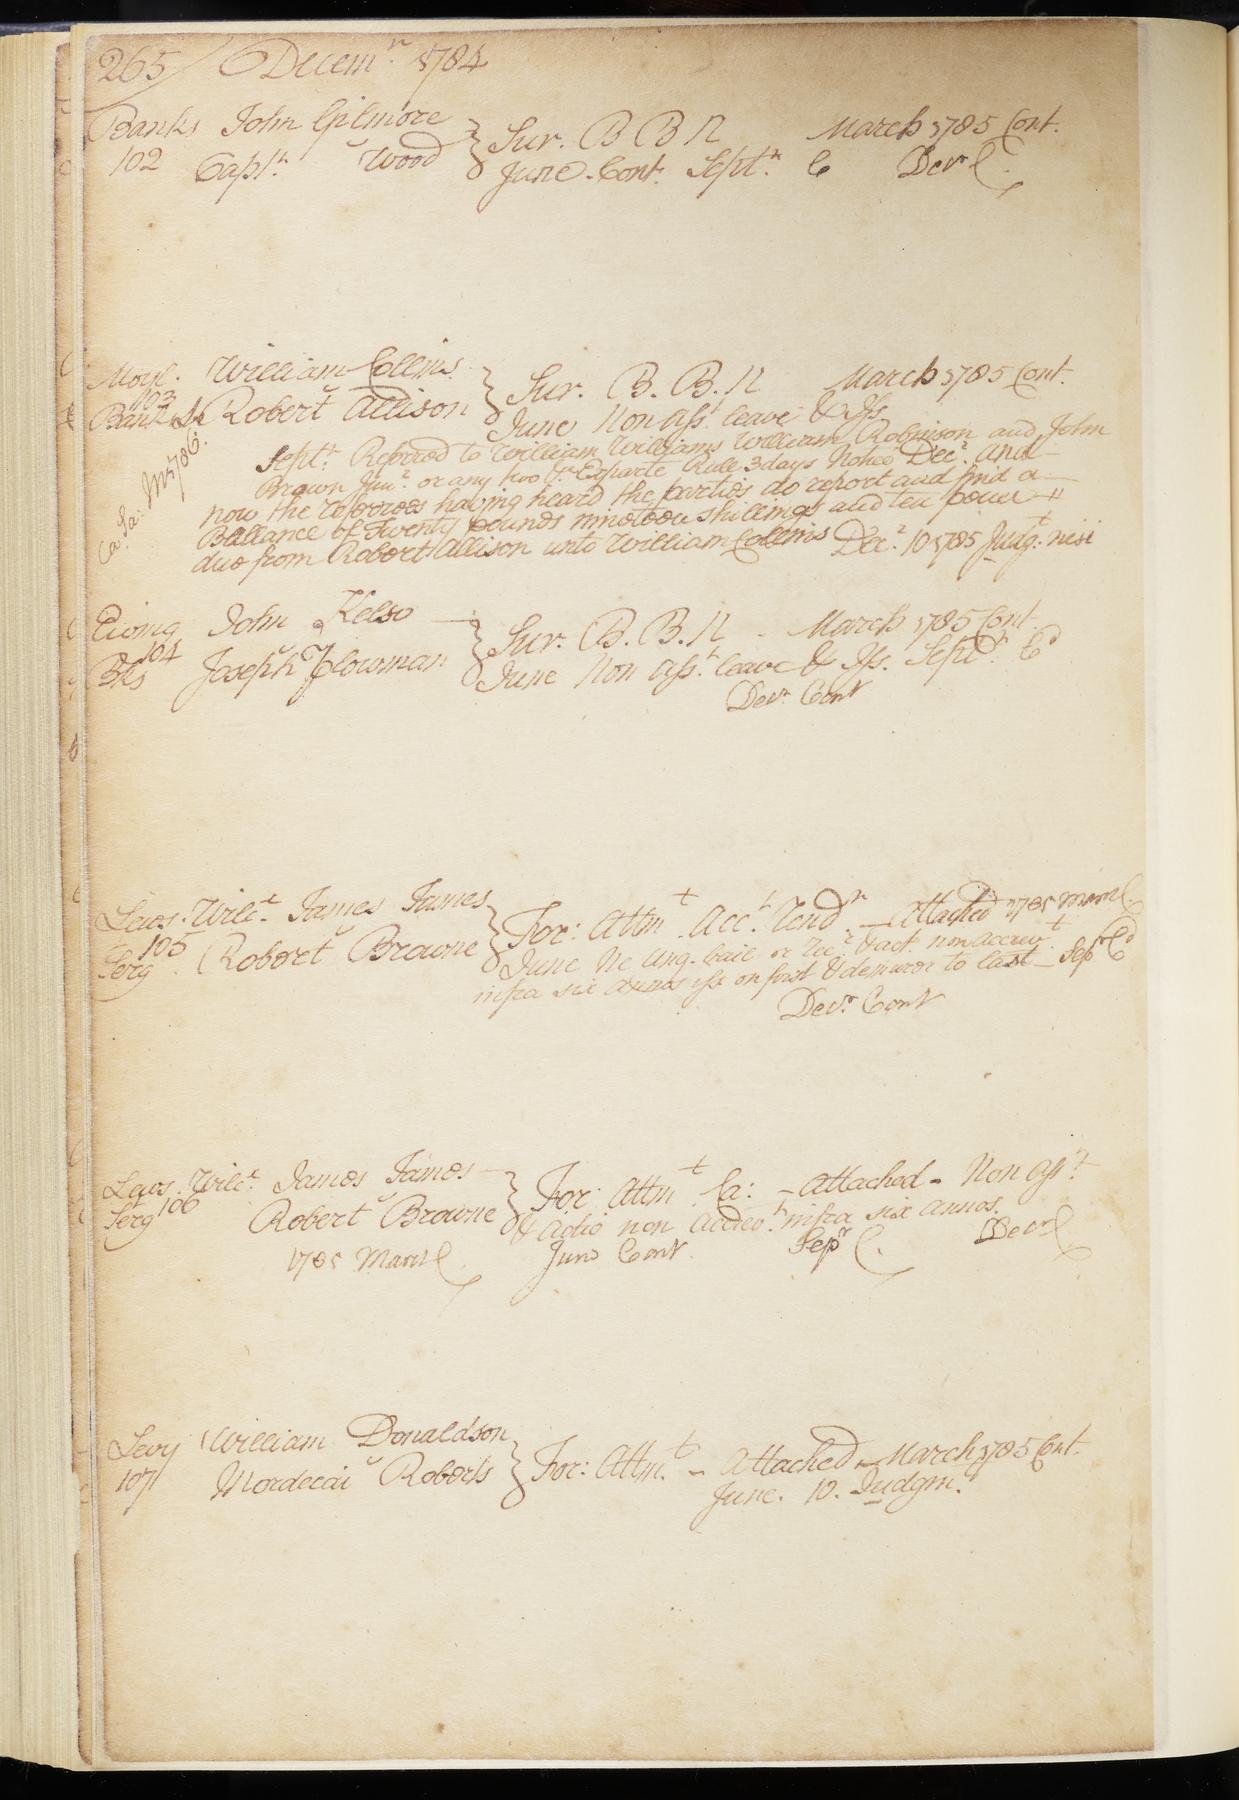 265 / Decemr. 1784
Banks John Gilmore } Sur. B B N March 1785 Cont.
102 Captn. v Wood June. Cont. Septr. C Decr C
Moyl. William Collins } Sur. B. B. N March 1785 Cont.
103 v
Banks Robert Allison June Non Asst. leave & Iss.
Septr. Referred to William Williams William Robinson and John
Brown Junr. or any two Exparte Rule 3 days Notice Decr. And
now the referrees having heard the parties do report and find a
Ballance of Twenty pounds nineteen shillings and ten pence
due from Robert Allison unto William Collins Decr. 10 1785 Judgt. nisi
Ca. Sa: M 1786.
Ewing John Kelso } Sur. B. B. N - March 1785 Cont.
104 v
Bks Joseph Plowman June Non Asst. leave & Iss. Septr. Cd
Decr. Cont
Lews. Wilct. James James } For: Attmt. Acct. Rend - Attached 1785 March C
105 v
Serg Robert Browne June Ne Unq. bail or Recr. & act. non accrevt.
infra six annos iss on first & demurrer to last - Sepr Cd
Decr. Cont
Lews. Wilct. James James } For. Attmt Ca: - Attached - Non Asst.
Serg 106 Robert Browne & Actio non Accrevt. infra six annos.
1785 March C June Cont. Sepr C. Decr C
Levy William Donaldson } For: Attmt. - Attached - March 1785 Cont.
107 Mordecai Roberts June. 10. Judgmt.